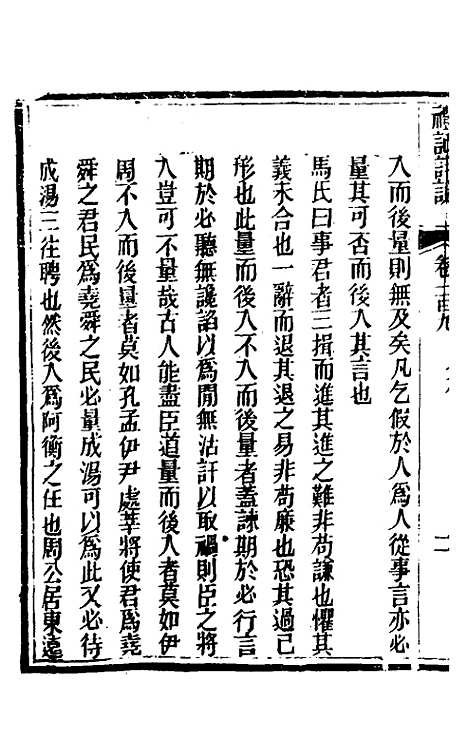 入而後量則無及矣凡乞假於人爲人從事言亦必
量其可否而後入其言也
馬氏曰事君者三揖而進其進之難非苟謙也懼其
義未合也一辭而退其退之易非苟廉也恐其過已
彤也此量而後入不入而後量者蓋諫期於必行言
期於必聽無讒諂以爲閒無沽訐以取禍則臣之將
入豈可不量哉古人能盡臣道量而後入者莫如伊
周不入而後量者莫如孔孟伊尹處莘將使君爲堯
舜之君民爲堯舜之民必量成湯可以爲此又必待
成湯三往聘也然後入爲阿衡之任也周公居東遠